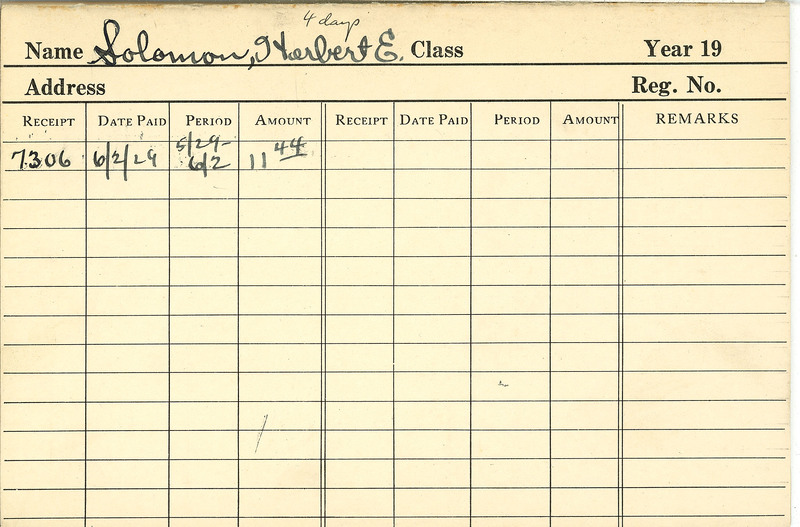 4 days
Name Solomon, Herbert E. Class Year 19
Address Reg. No.
RECEIPT DATE PAID PERIOD AMOUNT RECEIPT DATE PAID PERIOD AMOUNT REMARKS
5/29-
7306 6/2/29 6/2 11 44